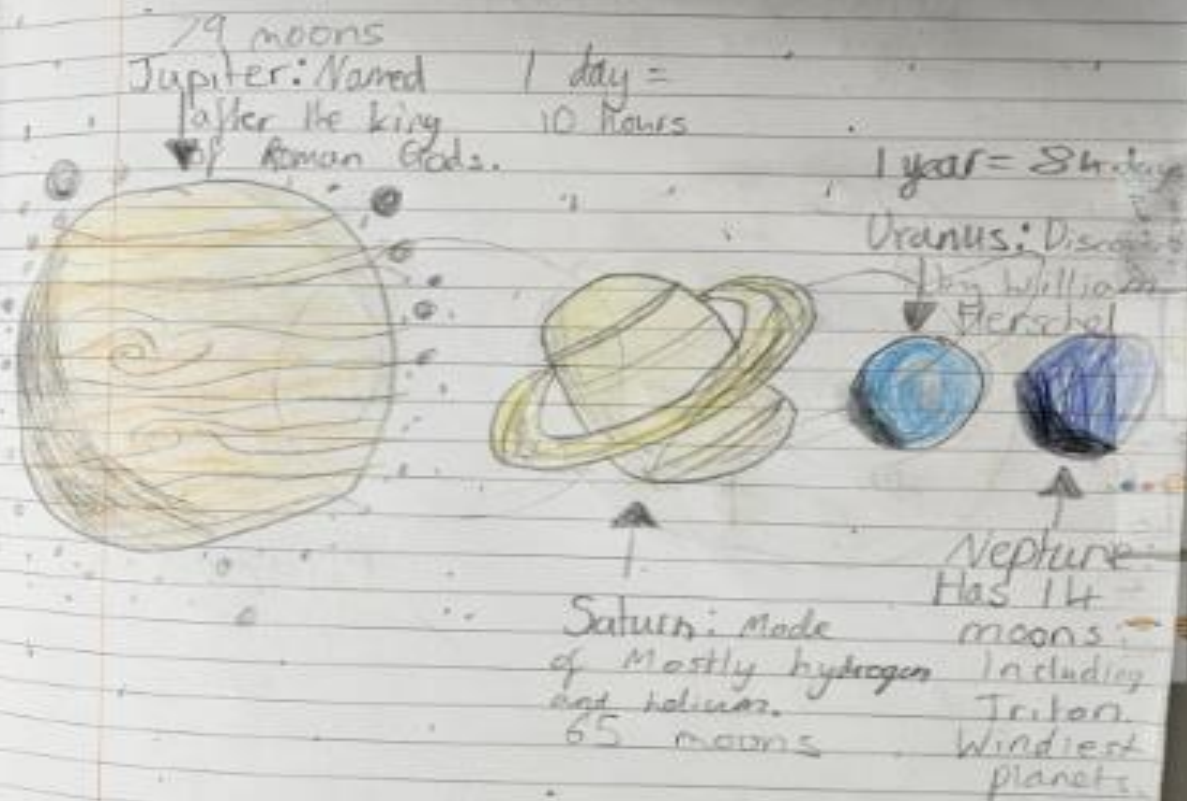 79 moons
Jupiter: Named
after the king
of Roman Gods.
1 day =
10 hours
1 year = 84
Uranus:
by William
Herschel
Saturn: Made
of Mostly hydrogen
and helium.
65 moons
Neptune:
Has 14
moons
Including
Triton.
Windiest
planet.